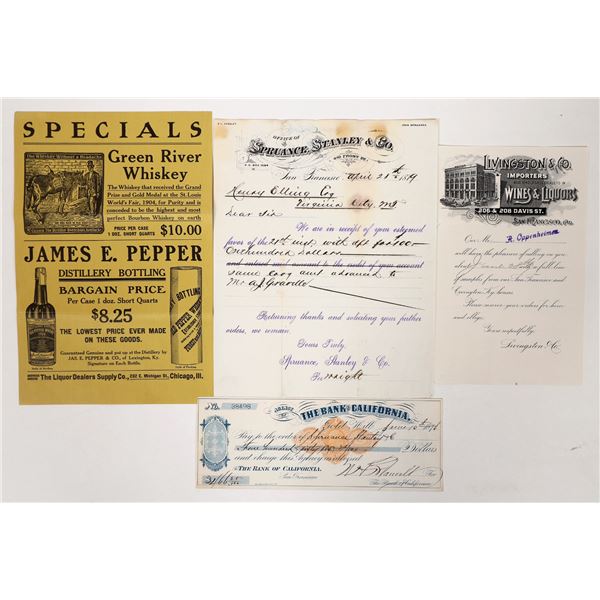 SPECIALS
The Whiskey Without a Headache
Green River
Whiskey
The Whiskey that received the Grand
Prize and Gold Medal at the St. Louis
World's Fair, 1904, for Purity and is
conceded to be the highest and most
perfect Bourbon Whiskey on earth.
PRICE PER CASE
1 DOZ. SHORT QUARTS
$10.00
JAMES E. PEPPER
DISTILLERY BOTTLING
BARGAIN PRICE
Per Case 1 doz. Short Quarts
$8.25
THE LOWEST PRICE EVER MADE
ON THESE GOODS.
Guaranteed Genuine and put up at the Distillery by
JAS. E. PEPPER & CO., of Lexington, Ky.
Signature on Each Bottle.
The Liquor Dealers Supply Co., 282 E. Michigan St., Chicago, Ill.
OFFICE OF
SPRUANCE, STANLEY & CO.
San Francisco April 25th 1879
Henry Elling Esq
Virginia City
Dear Sir
We are in receipt of your esteemed
favor of the inst, with
Onehundred Dollars
and entered said amount to the credit of your account
same
Returning thanks and soliciting your further
orders, we remain,
Yours Truly,
Spruance, Stanley & Co.
Per Wright
LIVINGSTON & CO.
IMPORTERS
WINES & LIQUORS
206 & 208 DAVIS ST.
SAN FRANCISCO, CAL.
Our Mr. R. Oppenheimer
will have the pleasure of calling on you
about with a full line
of samples from our San Francisco and
Covington, Ky. houses.
Please reserve your orders for him
and oblige
Yours respectfully,
Livingston & Co.
No. 38498
AGENCY OF
THE BANK OF CALIFORNIA,
Gold Hill, June
Pay to the order of Spruance Stanley & Co
Dollars
and charge this Agency as advised
THE BANK OF CALIFORNIA,
San Francisco
For
The Bank of California